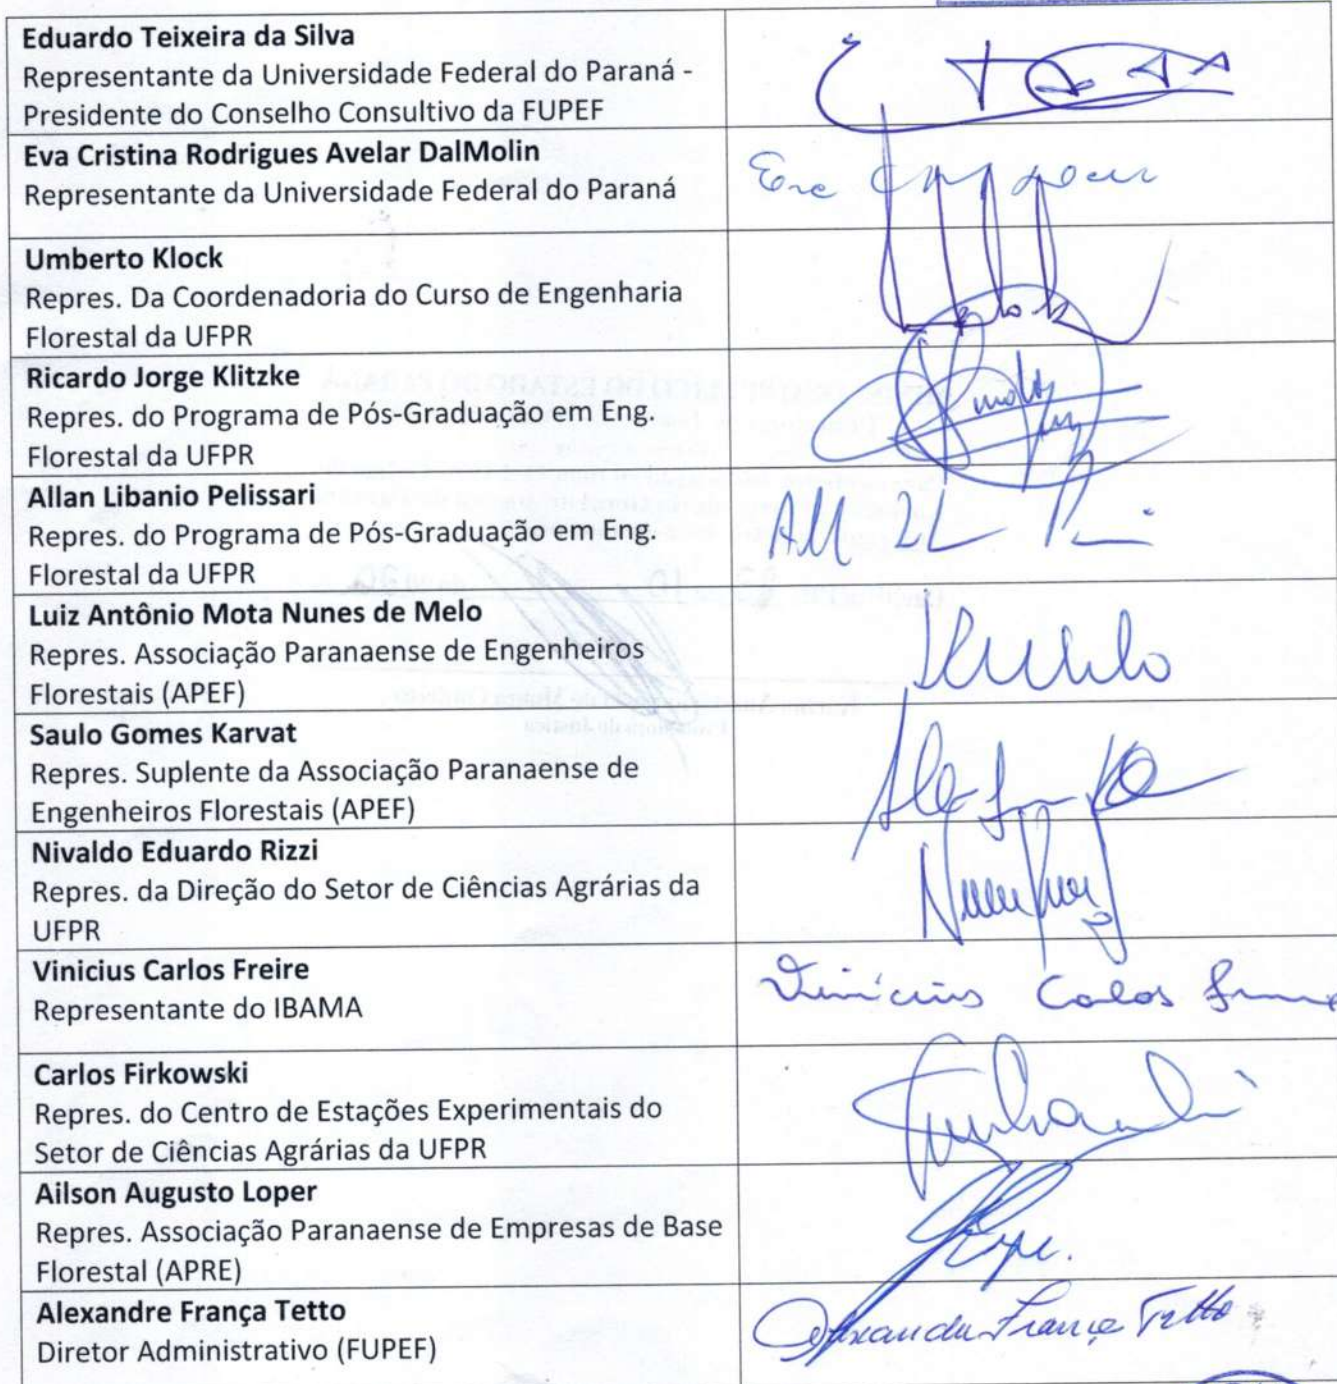 Eduardo Teixeira da Silva
Representante da Universidade Federal do Paraná -
Presidente do Conselho Consultivo da FUPEF
Eva Cristina Rodrigues Avelar DalMolin
Representante da Universidade Federal do Paraná
Umberto Klock
Repres. Da Coordenadoria do Curso de Engenharia
Florestal da UFPR
Ricardo Jorge Klitzke
Repres. do Programa de Pós-Graduação em Eng.
Florestal da UFPR
Allan Libanio Pelissari
Repres. do Programa de Pós-Graduação em Eng.
Florestal da UFPR
Luiz Antônio Mota Nunes de Melo
Repres. Associação Paranaense de Engenheiros
Florestais (APEF)
Saulo Gomes Karvat
Repres. Suplente da Associação Paranaense de
Engenheiros Florestais (APEF)
Nivaldo Eduardo Rizzi
Repres. da Direção do Setor de Ciências Agrárias da
UFPR
Vinicius Carlos Freire
Representante do IBAMA
Vinícius Carlos
Carlos Firkowski
Repres. do Centro de Estações Experimentais do
Setor de Ciências Agrárias da UFPR
Ailson Augusto Loper
Repres. Associação Paranaense de Empresas de Base
Florestal (APRE)
Alexandre França Tetto
Diretor Administrativo (FUPEF)
Alexandre França Tetto